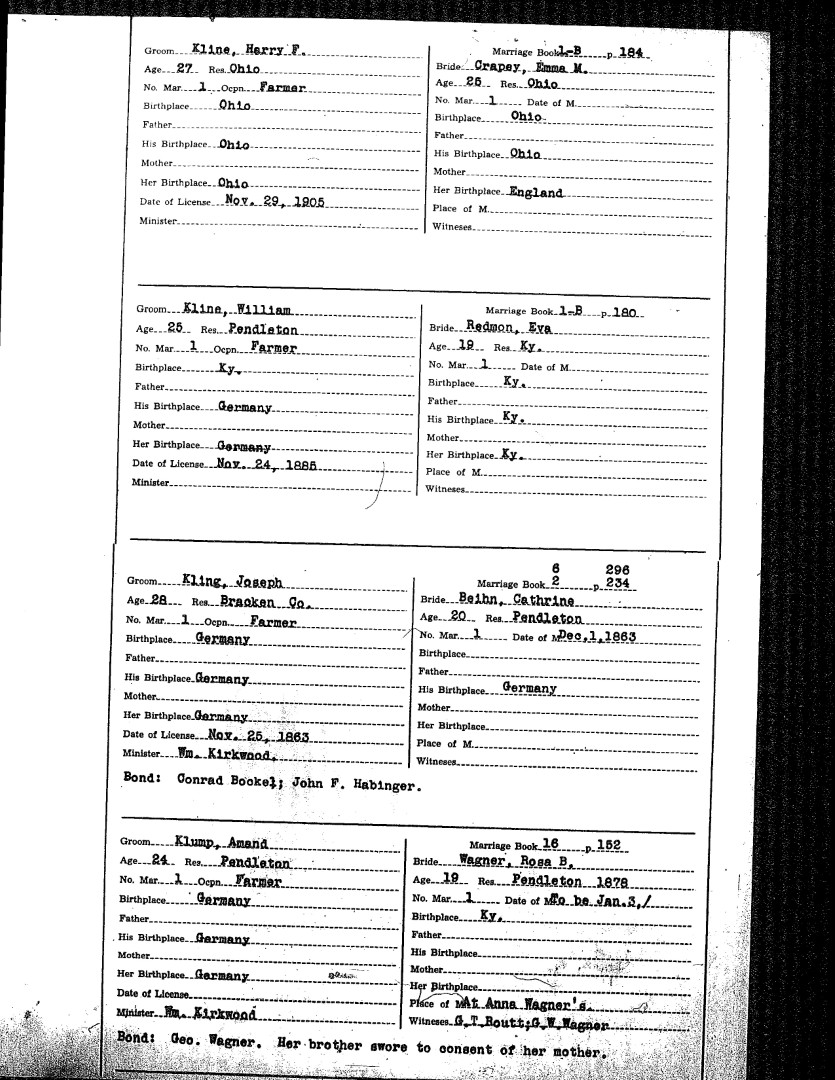 Groom Kline, Harry F.
Age 27 Res. Ohio
No. Mar. 1 Ocpn. Farmer
Birthplace Ohio
Father
His Birthplace Ohio
Mother
Her Birthplace Ohio
Date of License Nov. 29, 1905
Minister
Marriage Book 1-B p. 184
Bride Crapey, Emma M.
Age 25 Res. Ohio
No. Mar. 1 Date of M.
Birthplace Ohio
Father
His Birthplace Ohio
Mother
Her Birthplace England
Place of M.
Witneses
Groom Kline, William
Age 25 Res. Pendleton
No. Mar. 1 Ocpn. Farmer
Birthplace Ky.
Father
His Birthplace Germany
Mother
Her Birthplace Germany
Date of License Nov. 24, 1885
Minister
Marriage Book 1-B p. 180
Bride Redmon, Eva
Age 19 Res. Ky.
No. Mar. 1 Date of M.
Birthplace Ky.
Father
His Birthplace Ky.
Mother
Her Birthplace Ky.
Place of M.
Witneses
Groom Kling, Joseph
Age 28 Res. Bracken Co.
No. Mar. 1 Ocpn. Farmer
Birthplace Germany
Father
His Birthplace Germany
Mother
Her Birthplace Germany
Date of License Nov. 25, 1863
Minister Wm. Kirkwood.
6 296
Marriage Book 2 p. 234
Bride Beihn, Cathrine
Age 20 Res. Pendleton
No. Mar. 1 Date of M. Dec.1,1863
Birthplace
Father
His Birthplace Germany
Mother
Her Birthplace
Place of M.
Witneses
Bond: Conrad Bockel; John F. Habinger.
Groom Klump, Amand
Age 24 Res. Pendleton
No. Mar. 1 Ocpn. Farmer
Birthplace Germany
Father
His Birthplace Germany
Mother
Her Birthplace Germany
Date of License
Minister Wm. Kirkwood
Marriage Book 16 p. 152
Bride Wagner, Rosa B.
Age 19 Res. Pendleton 1878
No. Mar. 1 Date of M. To be Jan.3,/
Birthplace Ky.
Father
His Birthplace
Mother
Her Birthplace
Place of M. At Anna Wagner's
Witneses G.T.Boutt;G.W.Wagner
Bond: Geo. Wagner. Her brother swore to consent of her mother.